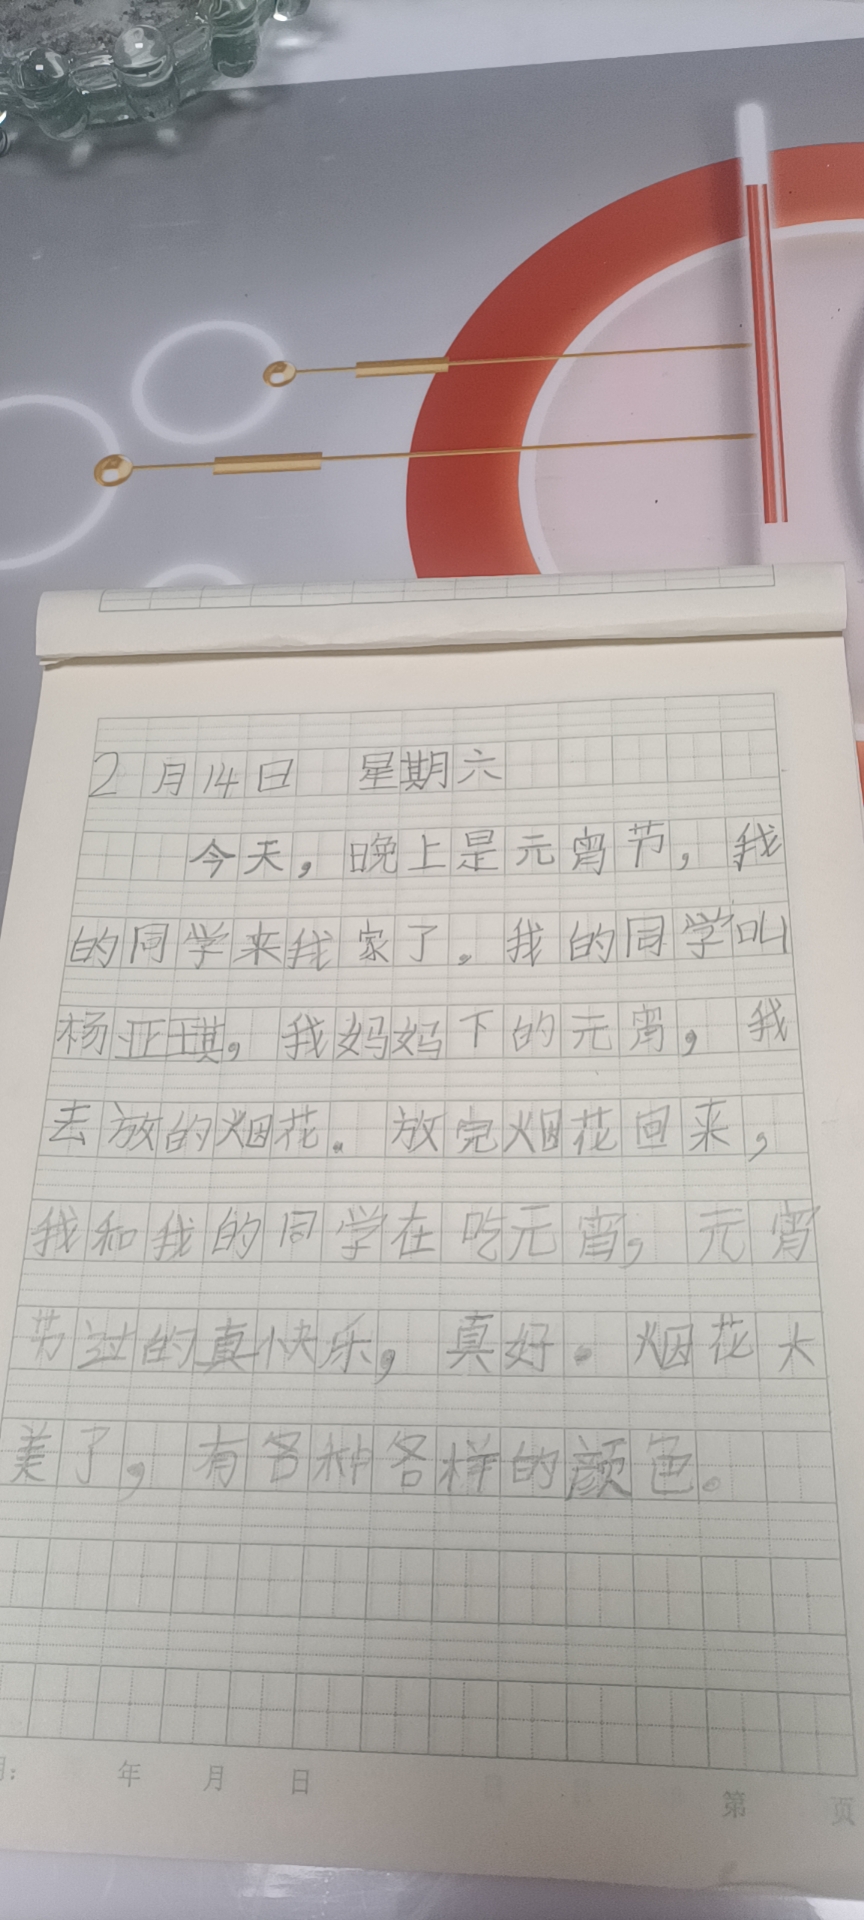 2月14日 星期六
今天，晚上是元宵节，我
的同学来我家了。我的同学叫
杨亚琪，我妈妈下的元宵，我
去放的烟花。放完烟花回来，
我和我的同学在吃元宵，元宵
节过的真快乐，真好。烟花太
美了，有各种各样的颜色。
年 月 日
第 页